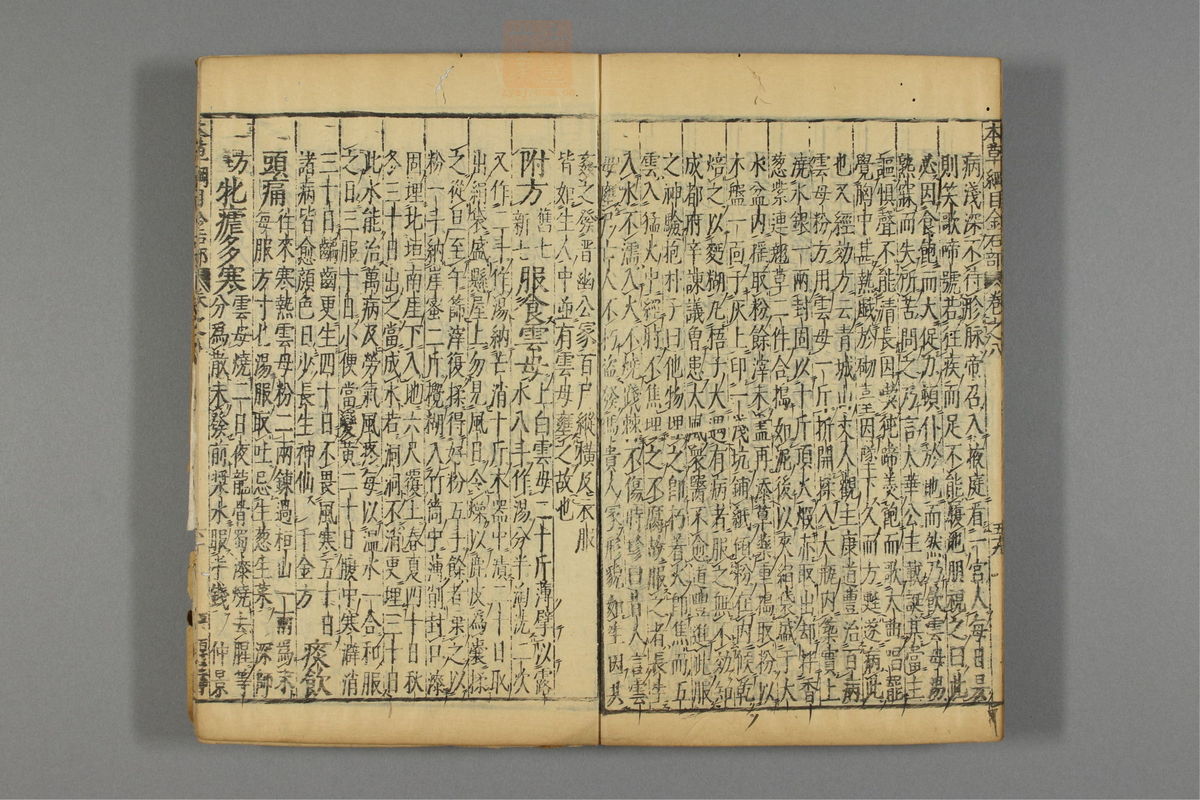 本草綱目金石部 卷之八
病淺深不待診脉帝召入掖庭看一宮人每日昃
則笑歌啼號若狂疾而足不能履地朋視之曰此
必因食飽而大促力頓仆於地而然乃飲雲母湯
熟寐而失所苦問之乃言太華公主載誕其當主
謳惧聲不能清長因喫㹠蹄羹飽而歌大曲唱罷
覺胸中甚熱戲於砌臺因墜下久而方甦遂病此
也又經効方云青城山丈人觀主康道豐治百病
雲母粉方用雲母一斤折開揉入大瓶內築實上
澆水銀一兩封固以十斤頂火煅赤取出却拌香
葱紫連翹草二件合搗如泥後以夾絹袋盛于大
水盆內搖取粉餘滓未盡再添草藥重搗取粉以
木盤一面于灰上印一淺坑鋪紙傾粉在內候乾
焙之以麫糊丸梧子大遇有病者服之無不効知
成都府辛諫議曾患大風衆醫不愈道豐進此服
之神驗抱朴子曰他物埋之即朽着火即焦而五
雲入猛火中經時不焦埋之不腐故服之者長生
入水不濡入火不燒踐棘不傷時珍曰昔人言雲
母壅尸亡人不朽盜發馮貴人冢形貌如生因共
姦之發晉幽公冢百尸縱橫及衣服
皆如生人中並有雲母壅之故也
附方 舊七新七 服食雲母 上白雲母二十斤薄擘以露
水八斗作湯分半洵洗二次
又作二斗作湯納芒消十斤木器中漬二十日取
出絹袋盛懸屋上勿見風日令燥以鹿皮爲囊揉
之從旦至午篩滓復揉得好粉五斗餘者棄之以
粉一斗納崖蜜二斤攪糊入竹筒中薄削封口漆
固埋北垣南崖下入地六尺覆土春夏四十日秋
冬三十日出之當成水若洞洞不消更埋三十日
此水能治萬病及勞氣風疼每以溫水一合和服
之日三服十日小便當變黃二十日腹中寒澼消
三十日齲齒更生四十日不畏風寒五十日
諸病皆愈顏色日少長生神仙 千金方 痰飲
頭痛 往來寒熱雲母粉二兩鍊過恒山一兩爲末
每服方寸匕湯服取吐忌生葱生菜 深師
方 牝瘧多寒 雲母燒二日夜龍骨蜀漆燒去腥等
分爲散未發前漿水服半錢 仲景